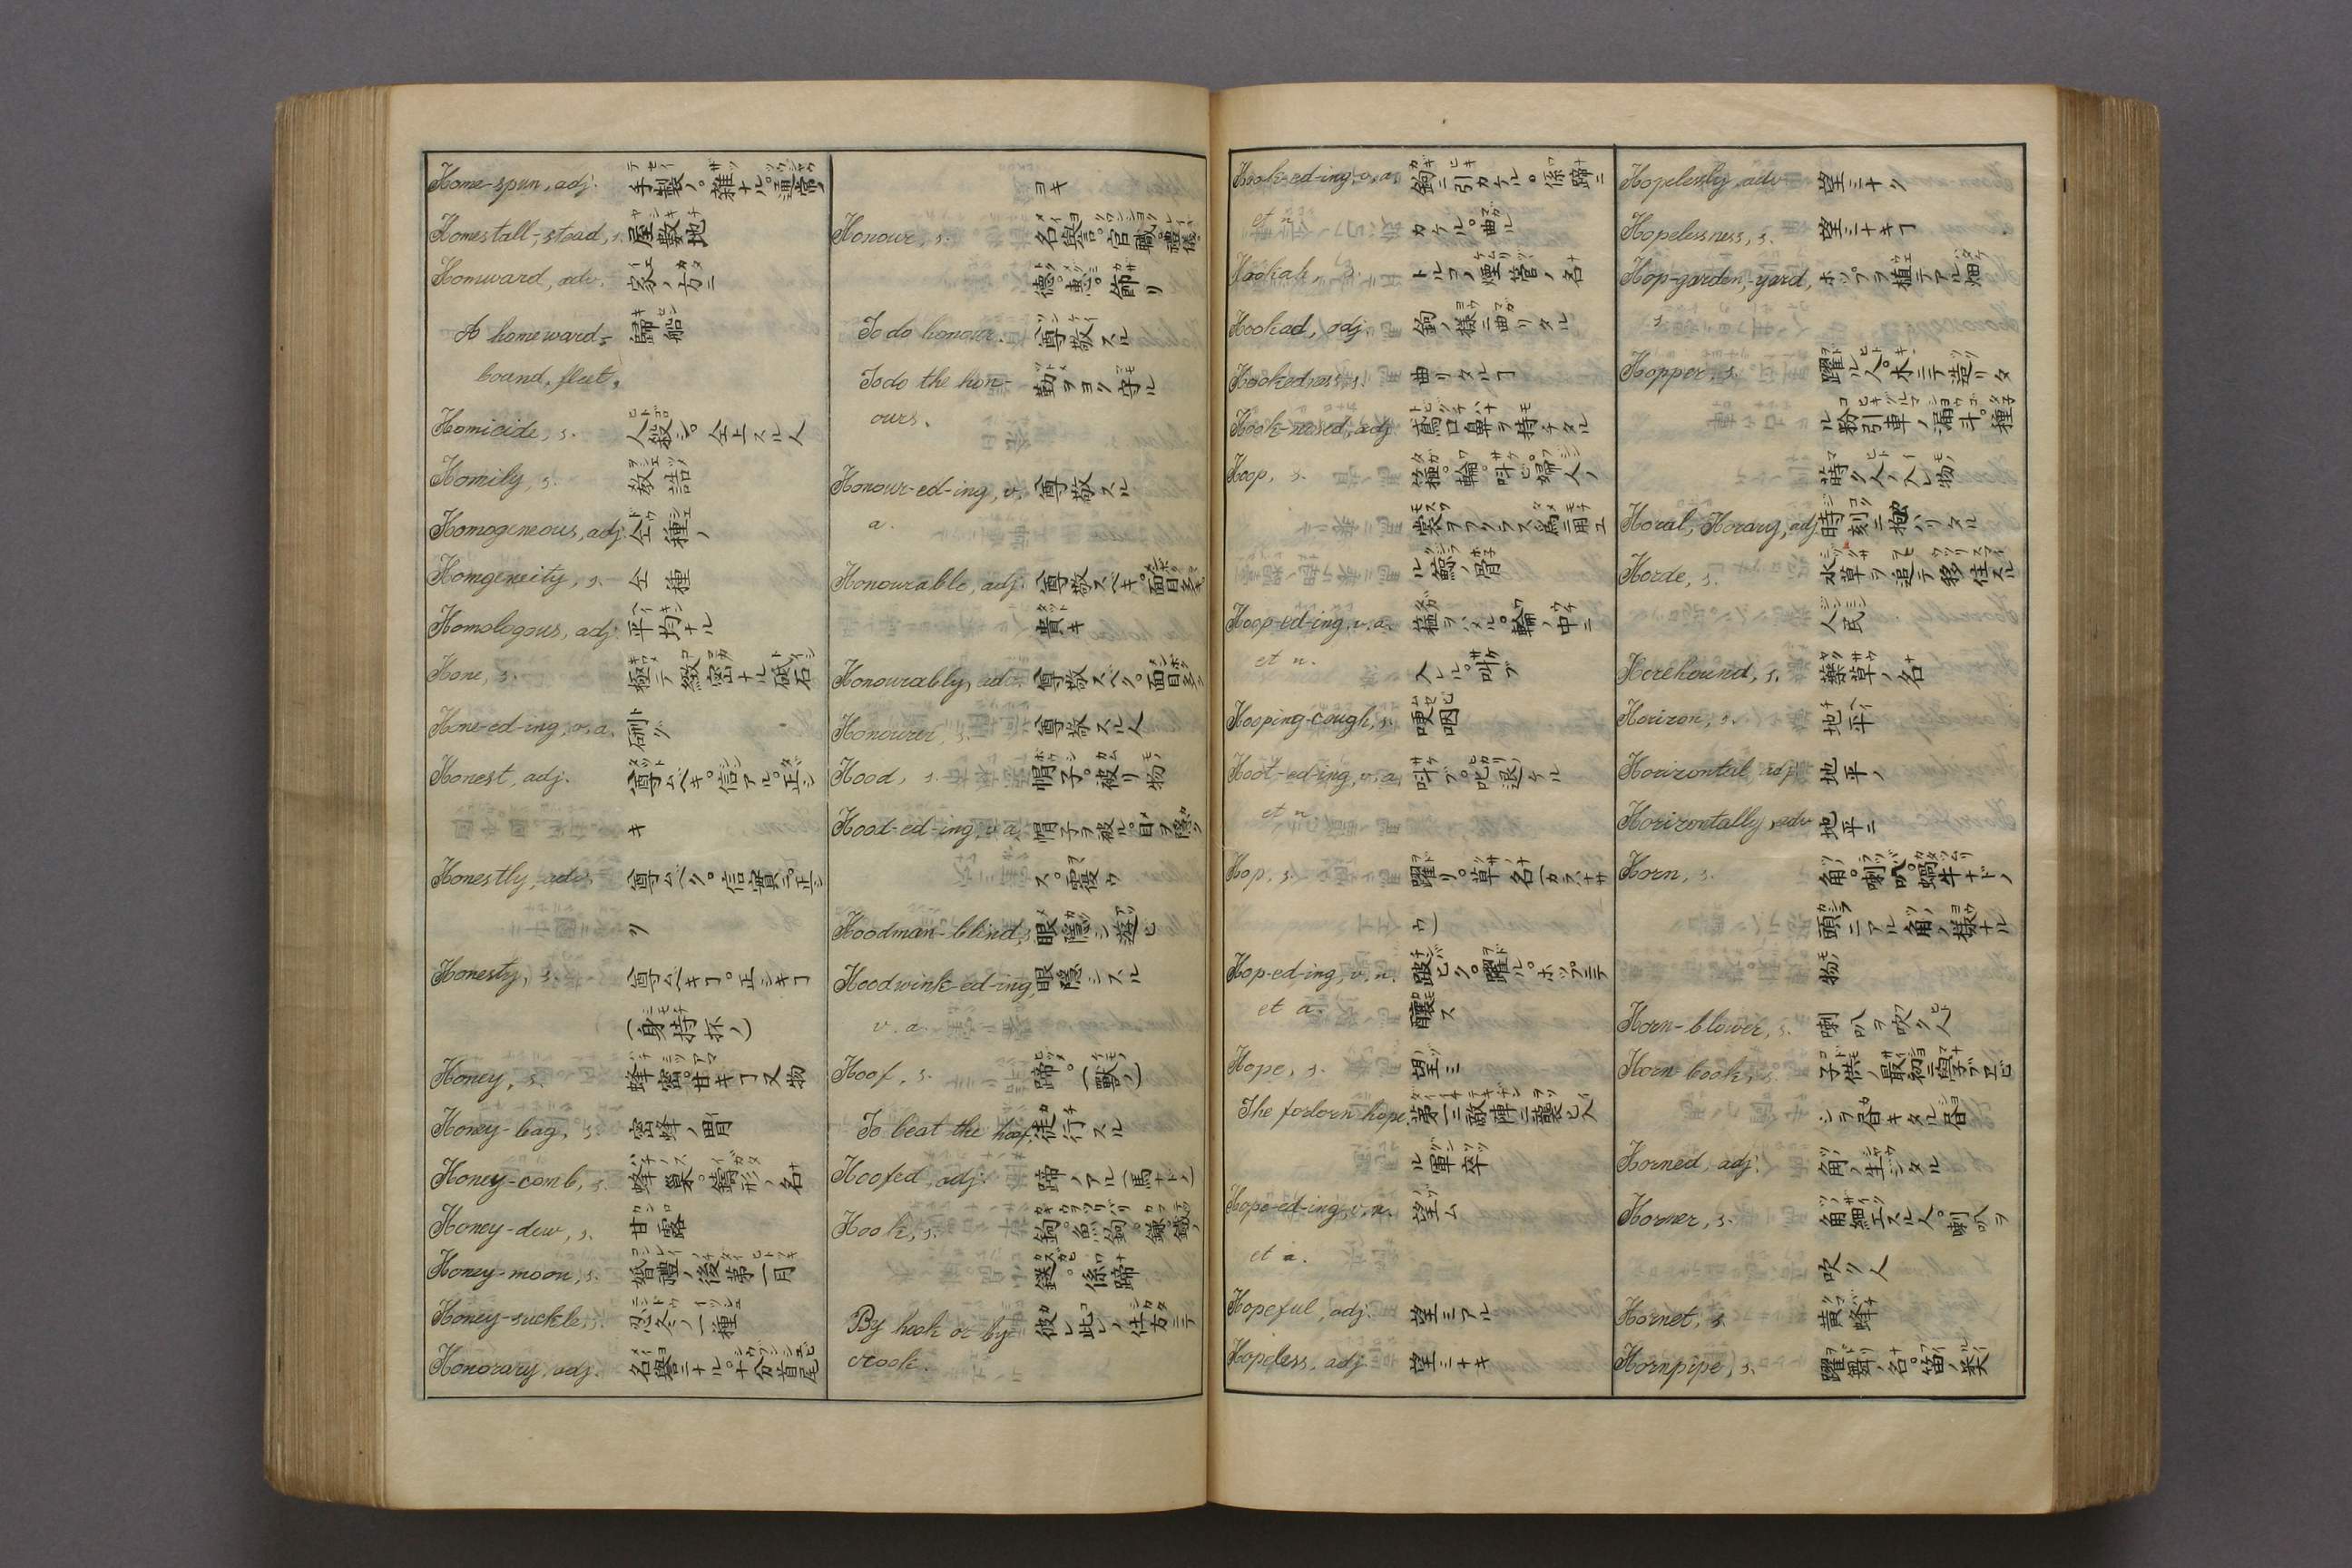 Home-spun, adj. 手製ノ。雜ナル。通常ノ
Homestall,-stead, s. 屋敷地
Homward, adv. 家ノ方ニ
A homeward- 歸船
bound, fleet,
Homicide, s. 人殺シ。仝上スル人
Homily, s. 教諸
Homogeneous, adj. 仝種ノ
Homgeneity, s. 仝種
Homologous, adj. 平均ナル
Hone, s. 極テ緻密ナル砥石
Hone-ed-ing, v. a.
Honest, adj. 尊ムベキ。信アル。正シ
キ
Honestly, adv. 尊ムベク。信實ニ。正シ
ク
Honesty, s. 尊ムベキヿ。正シキヿ
(身持抔ノ)
Honey, s. 蜂蜜。甘キヿ又物
Honey-bag, s. 蜜蜂ノ胃
Honey-comb, s. 蜂巢。鑄形ノ名
Honey-dew, s. 甘露
Honey-moon, s. 婚禮ノ後第一月
Honey-suckle, s. 忍冬ノ一種
Honorary, adj. 名譽ニナル。十分首尾
ヨキ
Honour, s. 名譽。官職。禮儀。
德。惠。飾リ
To do honour. 尊敬スル
To do the hon- 勤ヲヨク守ル
ours.
Honour-ed-ing, v. 尊敬スル
a.
Honourable, adj. 尊敬スベキ。面目多キ
貴キ
Honourably, ad. 尊敬スベク。面目多ク
Honourer, s. 尊敬スル人
Hood, s. 帽子。被リ物
Hood-ed-ing, v. a. 帽子ヲ被ル。目ヲ隱
ス。覆ウ
Hoodman-blind, s. 眼隱シ遊ビ
Hoodwink-ed-ing, 眼隱シスル
v. a.
Hoof, s. 蹄。(獸ノ)
To beat the hoof. 徒行スル
Hoofed, adj. 蹄ノアル(馬ナド)
Hook, s. 鉤。魚鉤。鎌。
鎹。係蹄
By hook or by 彼レ此レノ仕方ニテ
crook.
Hook-ed-ing, v. a. 鉤ニ引カケル。係蹄ニ
et n. カケル。曲ル
Hookah, s. トルコノ煙管ノ名
Hookad, adj. 鉤ノ樣ニ曲リタル
Hookedness, s. 曲リタルヿ
Hook-nosed, adj. 鳶口鼻ヲ持チタル
Hoop, s. 箍。輪。呌ビ。婦人ノ
裳ヲフクラス爲ニ用ユ
ル鯨ノ骨
Hoop-ed-ing, v. a. 箍ヲハメル。輪ノ中ニ
et n. 入レル。叫ブ
Hooping-cough, s. 哽咽
Hoot-ed-ing, v. a. 呌ブ。叱退ケル
et n.
Hop, s. 躍リ。草ノ名(カラハナサ
ウ)
Hop-ed-ing, v. n. 跛ビク。躍ル。ホップニテ
et a. 釀ス
Hope, s. 望ミ
The forlorn hope. 第一ニ敵陣ニ襲ヒ入
ル軍卒
Hope-ed-ing, v. n. 望ム
et a.
Hopeful, adj. 望ミアル
Hopeless, adj. 望ミナキ
Hoplessly, adv. 望ミナク
Hopelessness, s. 望ミナキヿ
Hop-garden,-yard, ホップヲ植テアル畑
s.
Hopper, s. 躍ル人。木ニテ造リタ
ル粉引車ノ漏斗。種
蒔ク人ノ入レ物
Horal, Horary, adj. 時刻ニ拠リタル
Horde, s. 水草ヲ追テ移住スル
人民
Horehound, s. 藥草ノ名
Horizon, s. 地平
Horizontal, adj. 地平ノ
Horizontally, adv. 地平ニ
Horn, s. 角。喇叭。蝸牛ナドノ
頭ニアル角ノ樣ナル
物
Horn-blower, s. 喇叭ヲ吹ク人
Horn-book, s. 子供ノ最初ニ學ブエビ
シヲ書キタル書
Horned, adj. 角ノ生ジタル
Horner, s. 角細工スル人。喇叭ヲ
吹ク人
Hornet, s. 黃蜂
Hornpipe, s. 躍舞ノ名。笛ノ類